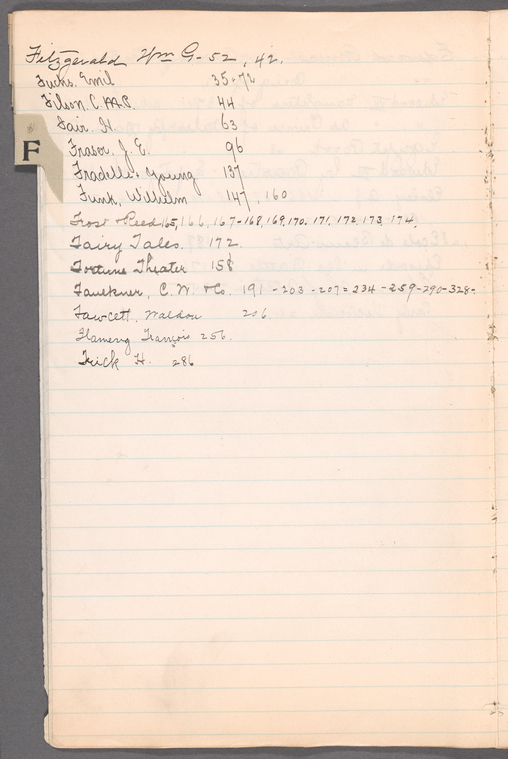 Fitzgerald Wm G - 52, 42.
Fuchs, Emil 35-72
Filson, C. M.P. 44
Fair. H. 63
F
Fraser, J. E. 96
Fradelle & Young 137
Funk, Wilhelm 147, 160
Frost & Reed 165, 166, 167-168, 169, 170. 171. 172, 173, 174,
Fairy Tales. 172.
Fortune Theater 158
Faulkner, C. W. & Co. 191 - 203 - 207 = 234 - 259 - 290 - 328 -
Fawcett, Waldon 206
Flameng François 256.
Frick H. 286